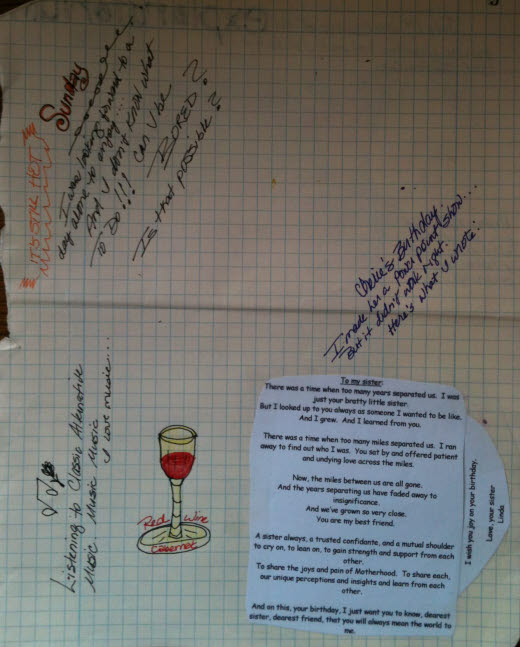 IT'S STILL HOT
Sunday
I was looking forward to a
day alone to enjoy...
And I don't know what
to Do!!! Can I be
BORED?
Is that possible?
Listening to Classic Alternative
Music Music Music
I love music...
Red Wine
Cabernet
Cherie's Birthday.
I made her a Power point show...
But it didn't work right.
Here's what I wrote:
To my sister:
There was a time when too many years separated us. I was
just your bratty little sister.
But I looked up to you always as someone I wanted to be like.
And I grew. And I learned from you.
There was a time when too many miles separated us. I ran
away to find out who I was. You set by and offered patient
and undying love across the miles.
Now, the miles between us are all gone.
And the years separating us have faded away to
insignificance.
And we've grown so very close.
You are my best friend.
A sister always, a trusted confidante, and a mutual shoulder
to cry on, to lean on, to gain strength and support from each
other.
To share the joys and pain of Motherhood. To share each,
our unique perceptions and insights and learn from each
other.
And on this, your birthday, I just want you to know, dearest
sister, dearest friend, that you will always mean the world to
me.
I wish you joy on your birthday.
Love, your sister
Linda